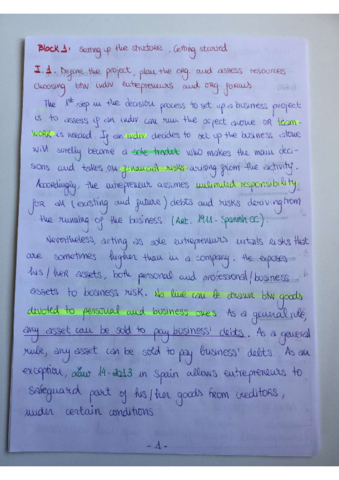 Block 1: Setting up the structure. Getting started
I.1. Define the project, plan the org. and assess resources
choosing btw indiv entrepreneurs and org forms
The 1st step in the decision process to set up a business project
is to assess if an indiv can run the project alone or team-
work is needed. If an indiv decides to set up the business alone
will surely become a sole trader who makes the main deci-
sions and takes on financial risks arising from the activity.
Accordingly the entrepreneur assumes unlimited responsibility
for all (existing and future) debts and risks deriving from
the running of the business (Art. 1911 - Spanish CC).
Nevertheless, acting as sole entrepreneurs entails risks that
are sometimes higher than in a company. He exposes
his/her assets, both personal and professional/business
assets to business risk. No line can be drawn btw goods
devoted to personal and business ones. As a general rule,
any asset can be sold to pay business' debts. As a general
rule, any asset can be sold to pay business' debts. As an
exception, Law 14-2013 in Spain allows entrepreneurs to
safeguard part of his/her goods from creditors,
under certain conditions
- 1 -